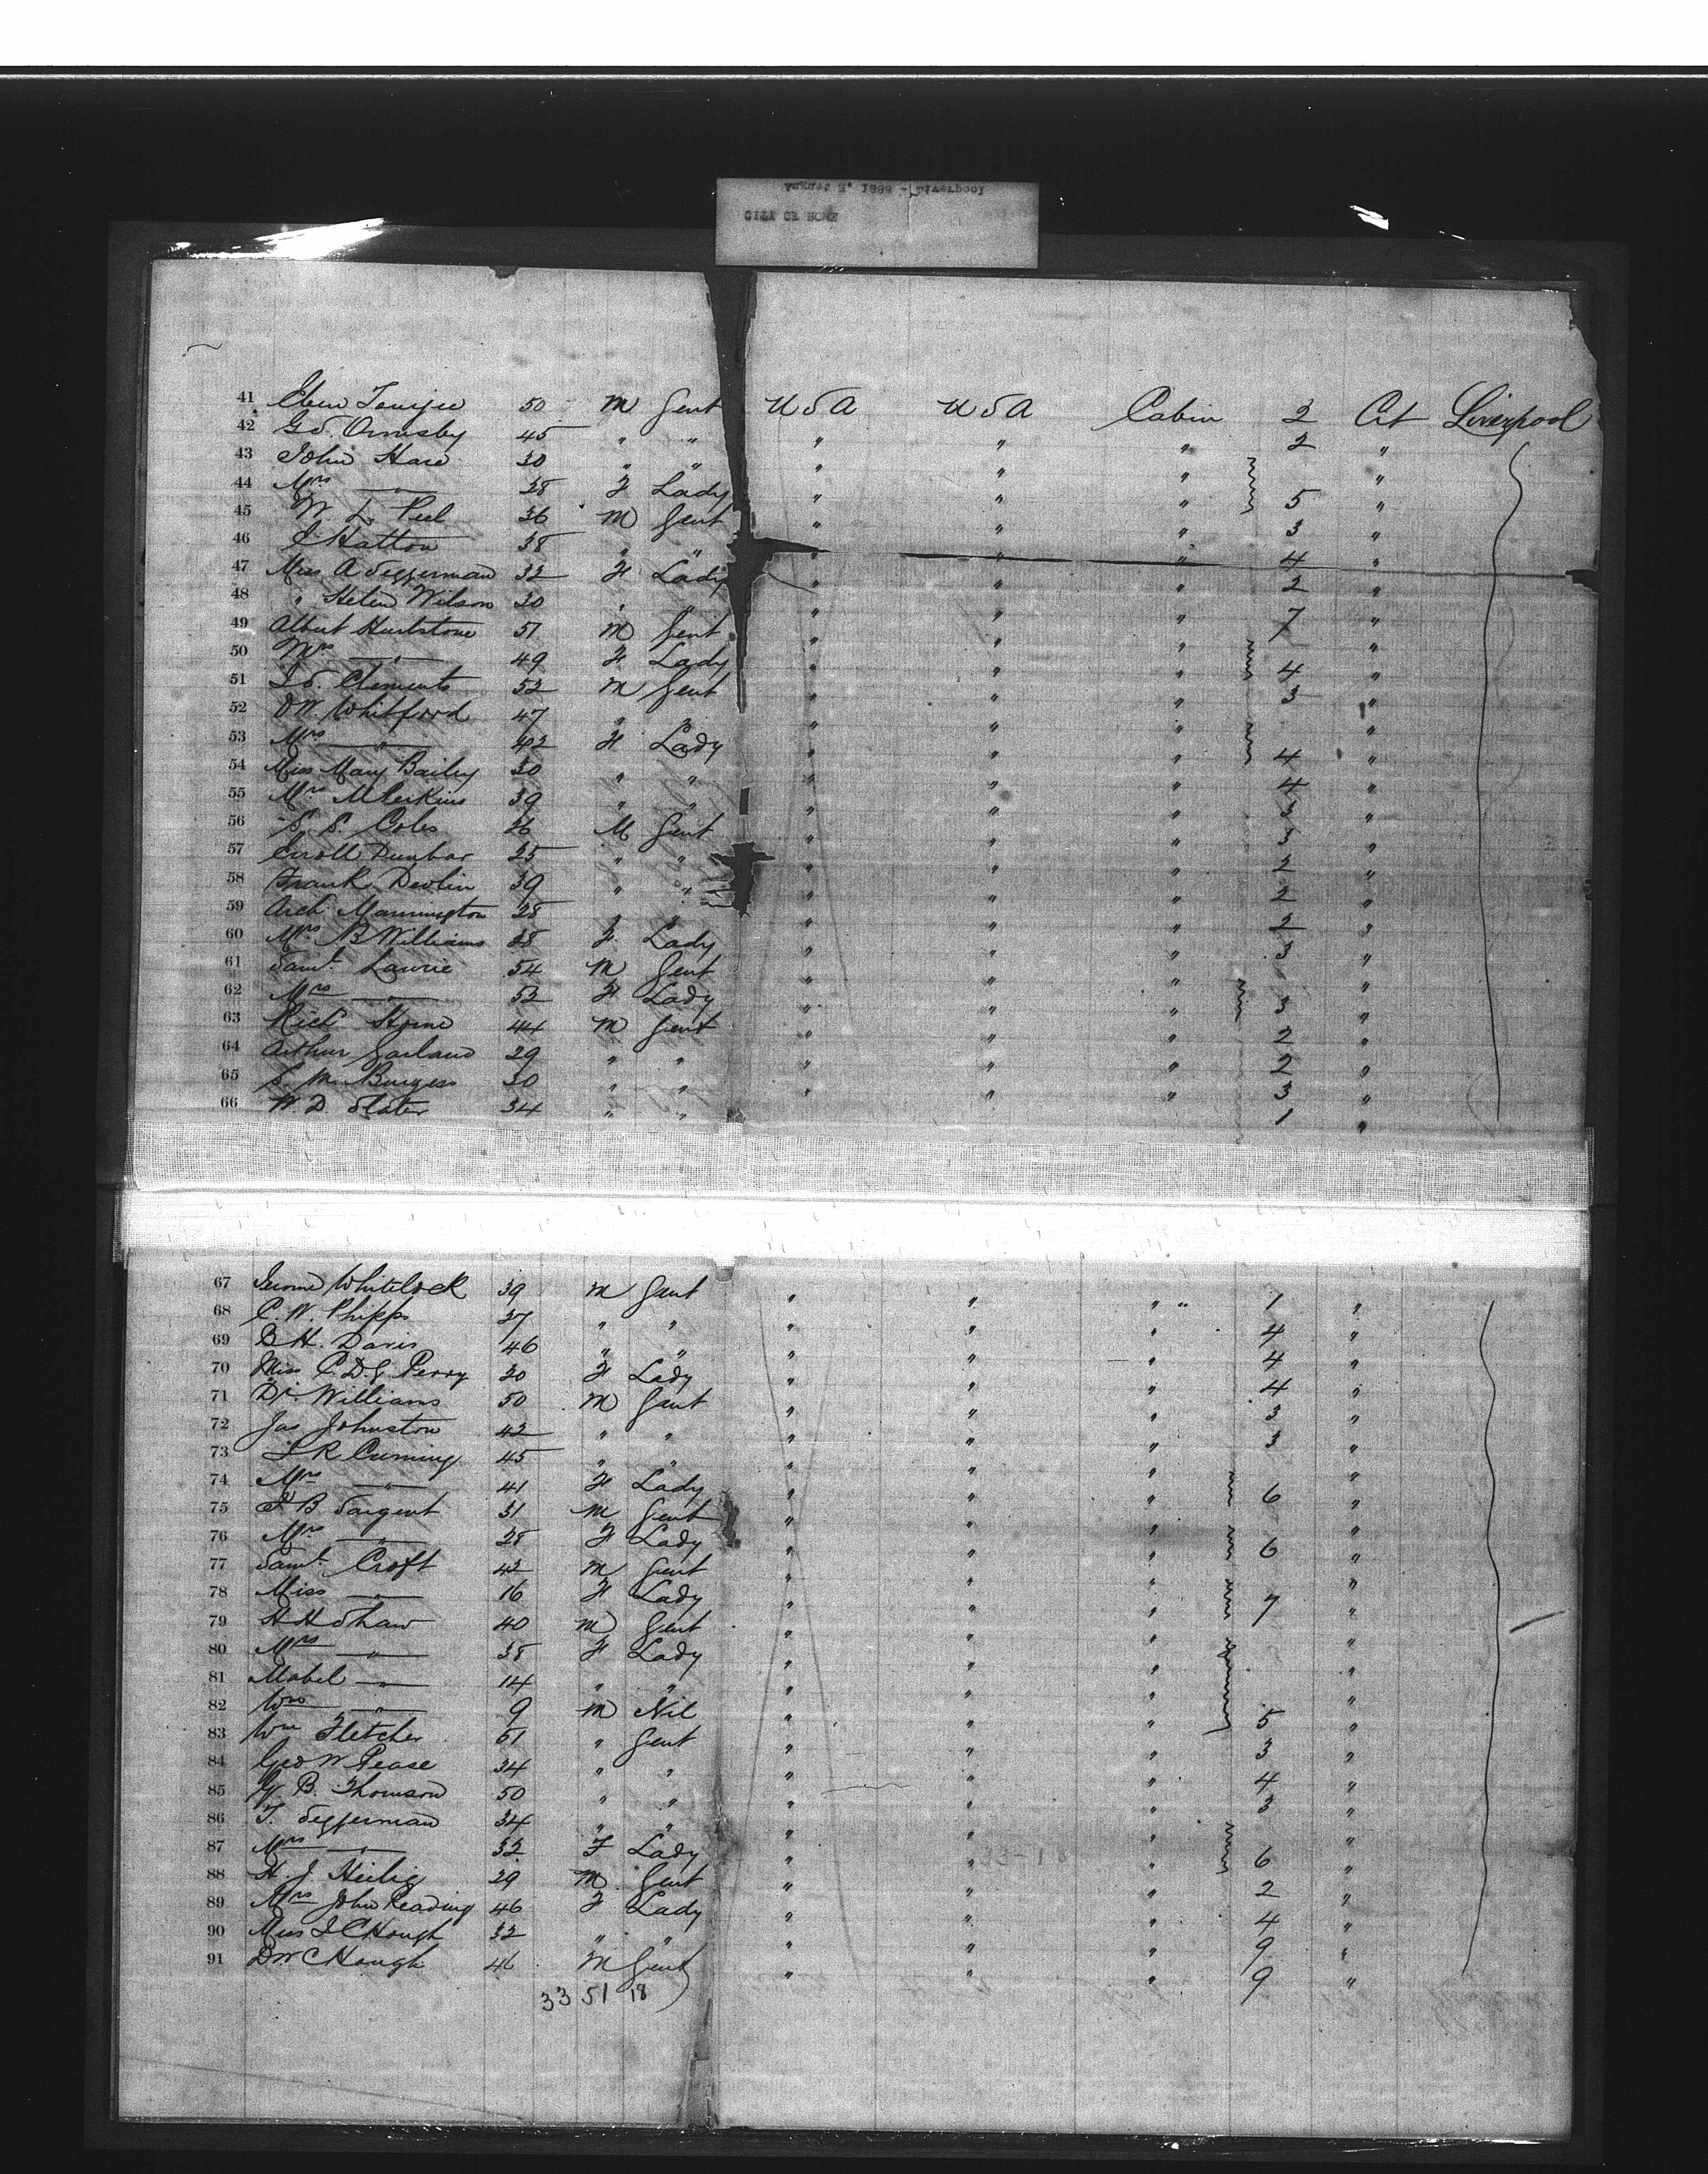 CITY OF ROME
41 Eben Tourjee 50 M Gent USA USA Cabin 2 Cit Liverpool
42 G S. Ormsby 45 " " " " " 2 "
43 John Hare 30 " " " " " "
44 Mrs " 28 F Lady " " " 5 "
45 W. L. Peel 36 M Gent " " " 3 "
46 Hatton 38 " " " " " 4 "
47 Miss A Seggerman 32 F Lady " " " 2 "
48 " Helen Wilson 30 " " " " " 7 "
49 Albert Hurlstone 51 M Gent " " " "
50 Mrs " 49 F Lady " " " 4 "
51 Clements 52 M Gent " " " 3 "
52 Whitford 47 " " " " " "
53 Mrs " 42 F Lady " " " 4 "
54 Miss Mary Bailey 30 " " " " " 4 "
55 Mrs 39 " " " " " 3 "
56 S. S. Coles 26 M Gent " " " 3 "
57 Erroll Dunbar 25 " " " " " 2 "
58 Frank Devlin 39 " " " " " 2 "
59 Arch Mannington 28 " " " " " 2 "
60 Mrs B Williams 38 F Lady " " " 3 "
61 Saml. Lawrie 54 M Gent " " " "
62 Mrs " 52 F Lady " " " 3 "
63 Rich Horne 44 M Gent " " " 2 "
64 Arthur Garland 29 " " " " " 2 "
65 S. M. Burgess 30 " " " " " 3 "
66 W. D. Slater 34 " " 1 "
67 Jerome Whitelock 39 M Gent " " " " 1 "
68 C. W. Phipps 37 " " " " " 4 "
69 B H. Davis 46 " " " " " 4 "
70 Miss C. D. G. Perry 30 F Lady " " " 4 "
71 Dr. Williams 50 M Gent " " " 3 "
72 Jas Johnston 42 " " " " " 3 "
73 L R Cuming 45 " " " " " "
74 Mrs " 41 F Lady " " " 6 "
75 B Sargent 31 M Gent " " " "
76 Mrs " 28 F Lady " " " 6 "
77 Saml. Croft 42 M Gent " " " "
78 Miss " 16 F Lady " " " 7 "
79 H H Shaw 40 M Gent " " " "
80 Mrs " 38 F Lady " " " "
81 Mabel " 14 " " " " " "
82 Wm " 9 M Nil " " " 5 "
83 Wm Fletcher 51 " Gent " " " 3 "
84 Geo W Pease 34 " " " " " 4 "
85 B. Thomson 50 " " " " " 3 "
86 F. Seggerman 34 " " " " " "
87 Mrs " 32 F Lady " " " 6 "
88 H. J. Heilig 29 M Gent " " " 2 "
89 Mrs John Reading 46 F Lady " " " 4 "
90 Miss I C Hough 32 " " " " " 9 "
91 D W C Hough 46 M Gent " " " 9 "
33 51 18